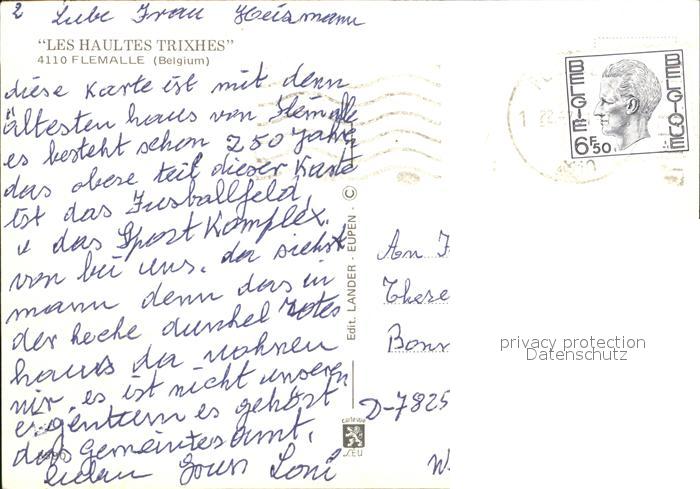 2 Liebe Frau Heismann
"LES HAULTES TRIXHES"
4110 FLEMALLE (Belgium)
diese Karte ist mit denn
ältesten haus von Flemalle
es besteht schon 250 Jahre
das obere teil dieser Karte
ist das Fussballfeld,
u das Sport Komplex.
von bei uns. da siehst
mann denn das in
der hecke dunkel rotes
haus da wohnen
wir, es ist nicht unseren
eigentum es gehört
das Gemeintesamt.
lieben Gruss Loni
Edit. LANDER - EUPEN - ©
cartevue
BELGIE BELGIQUE
6F50
An F
There
Bonn
D-7825
W.
privacy protection
Datenschutz